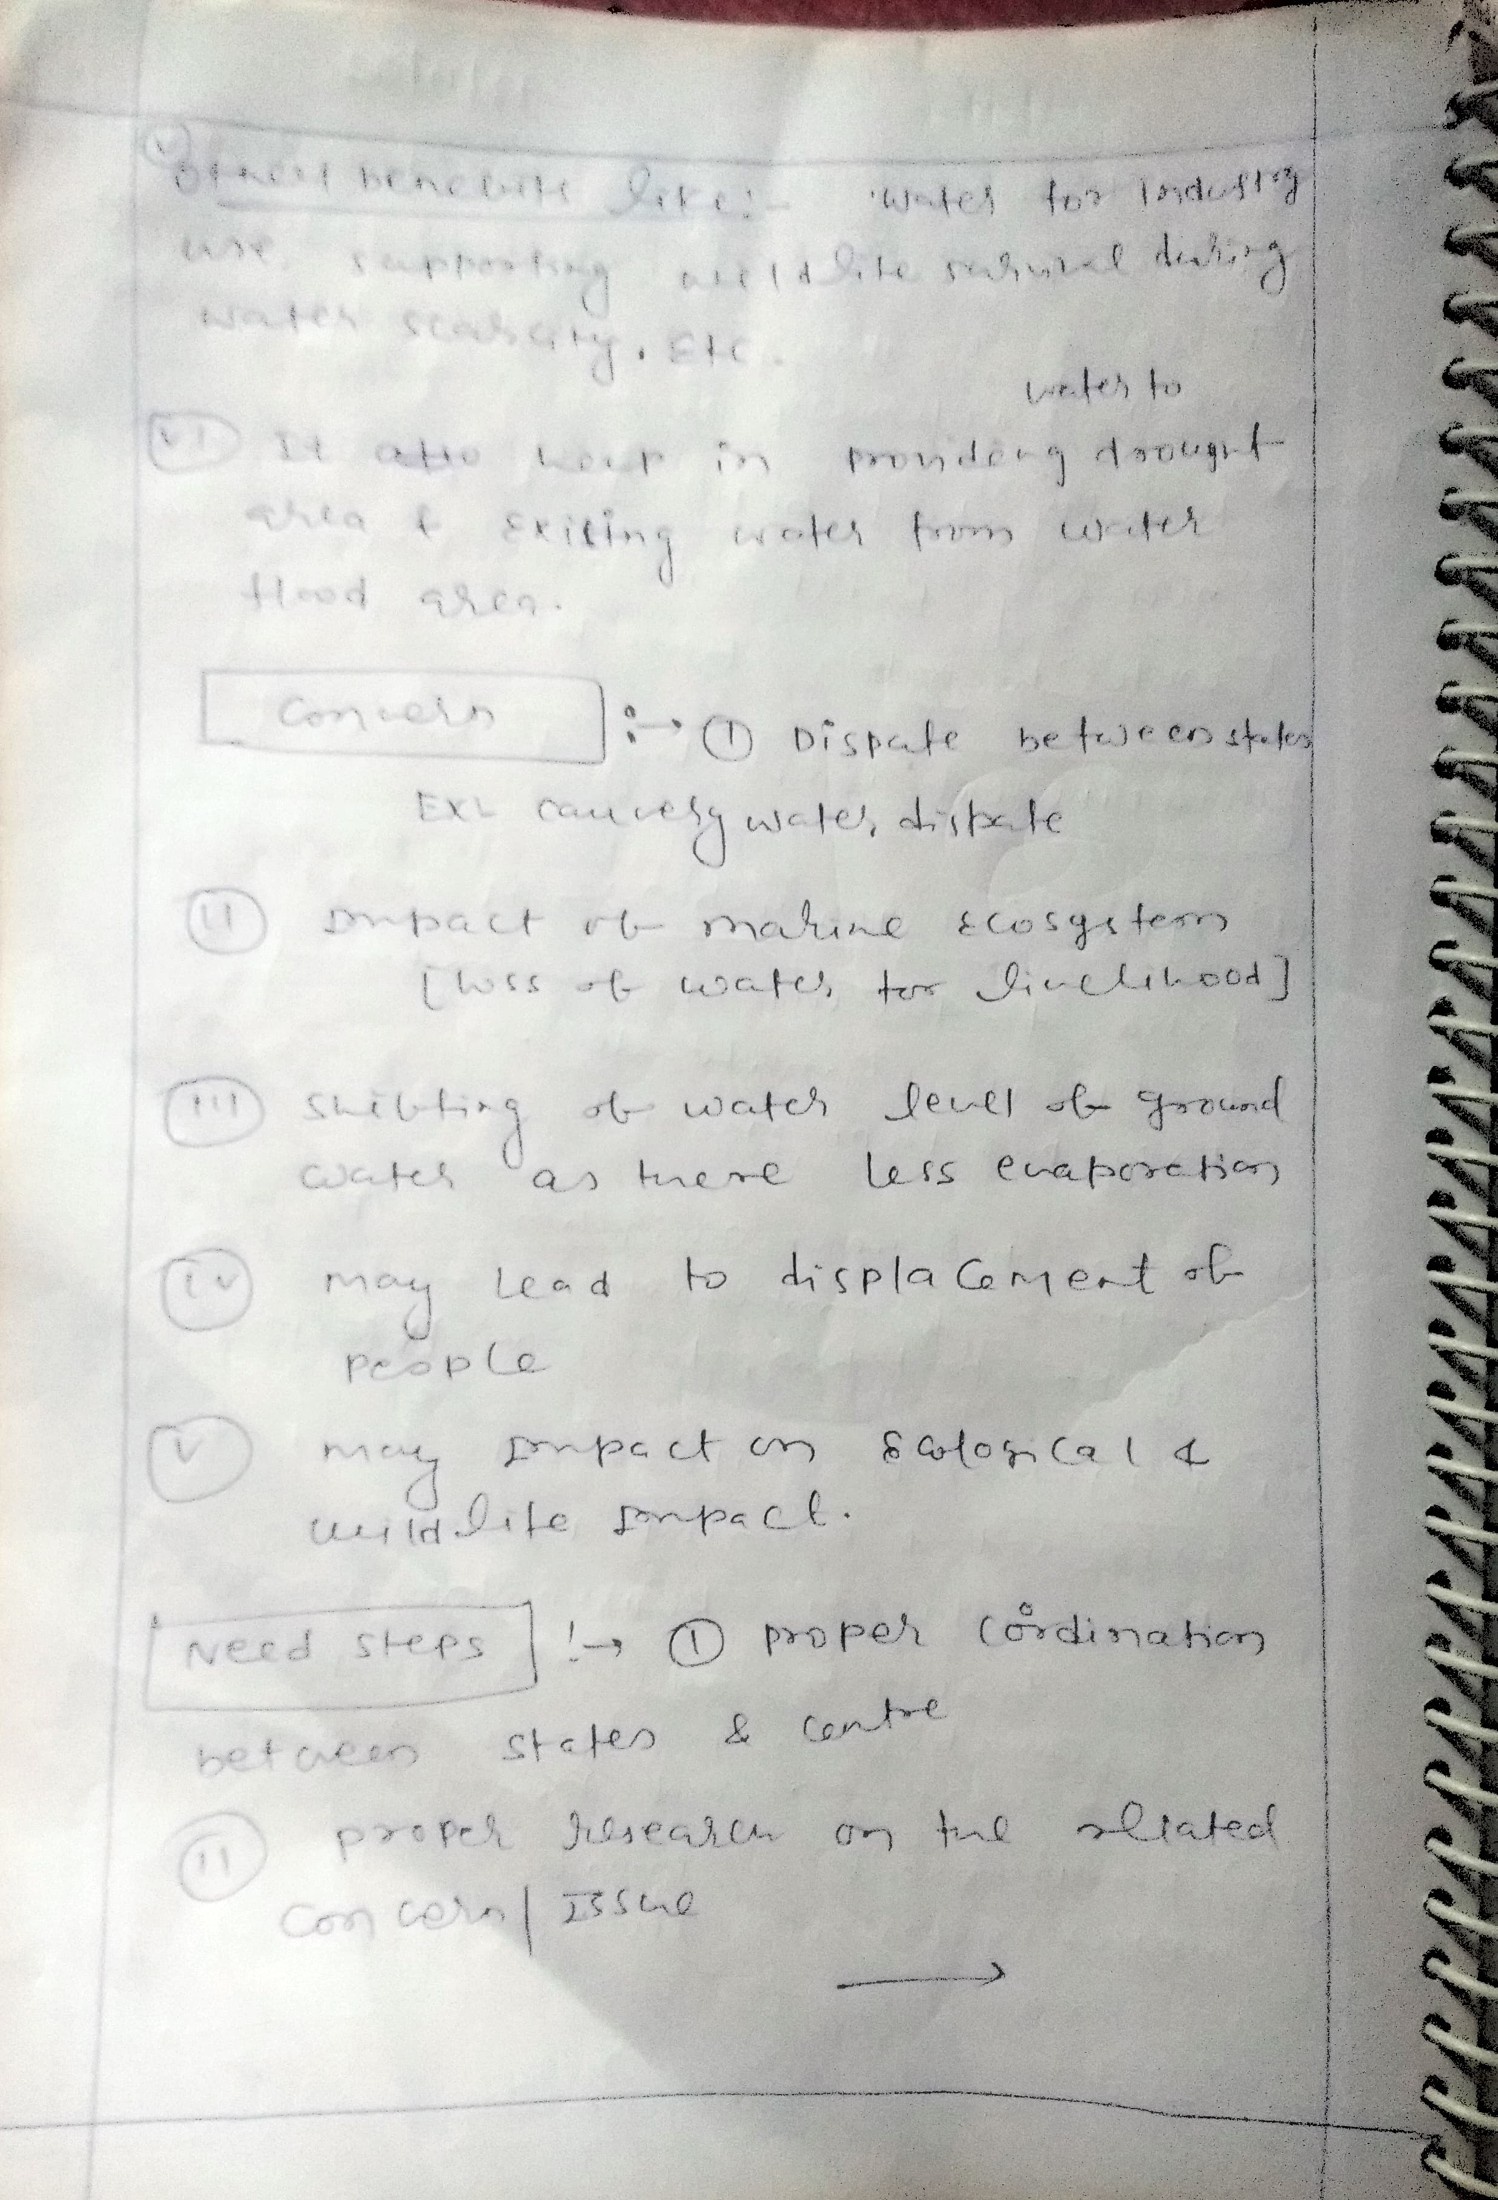 (V) Other benefits like:- Water for Industry
use, supporting wildlife survival during
water scarcity, Etc.
water to
(VI) It also help in providing drought
area & exiting water from water
flood area.
Concern :→ (I) Dispute between states
Ex:- cauvery water dispute
(II) Impact of marine Ecosystem
[loss of water for livelihood]
(III) Shifting of water level of ground
water as there less evaporation
(IV) may Lead to displacement of
people
(V) may Impact on Ecological &
wildlife Impact.
Need steps :→ (I) proper coordination
between states & centre
(II) proper research on the related
concern | Issue
→